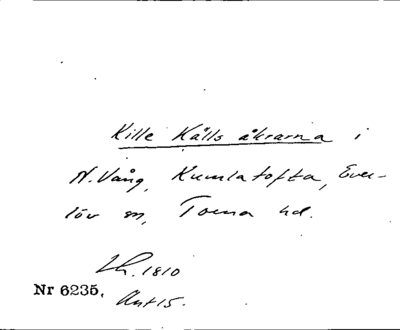 Kille Kålls åkrarna i
N. Vång, Kumlatofta, Ever-
löv sn, Torna hd.
Lh. 1810
Nr 6235.
Ant 15.